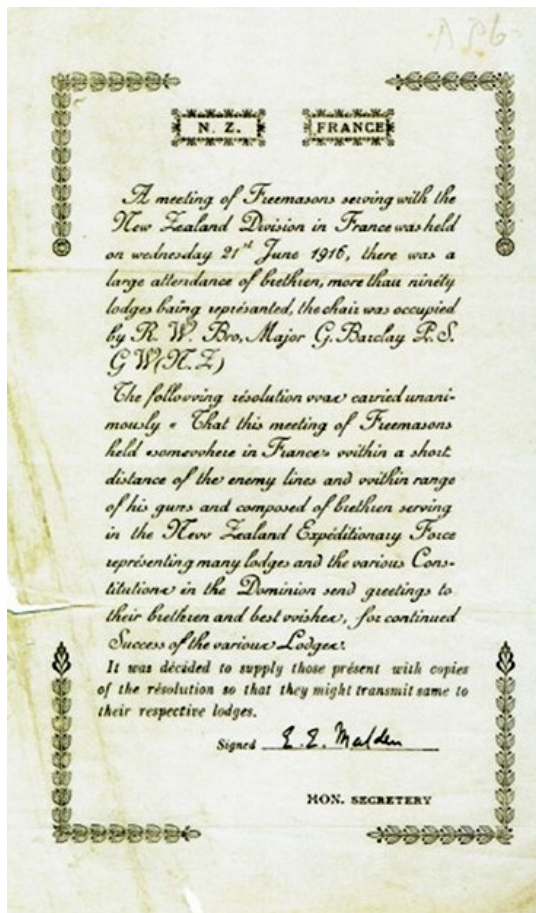 N. Z. FRANCE
A meeting of Freemasons serving with the
New Zealand Division in France was held
on wednesday 21st June 1916, there was a
large attendance of brethren, more thau ninety
lodges being représanted, the chair was occupied
by R. W. Bro, Major G. Barclay P. S.
G W (N. Z)
The follovving résolution vvas carried unani-
mously « That this meeting of Freemasons
held «somevvhere in France» vvithin a short
distance of the enemy lines and vvithin range
of his guns and composed of brethren serving
in the Nevv Zealand Expéditionary Force
représenting many lodges and the various Cons-
titutions in the Dominion send greetings to
their brethren and best vvishes, for continued
Success of the various Lodges.
It was décided to supply those présent with copies
of the résolution so that they might transmit same to
their respective lodges.
Signed E. E. Malden
HON. SECRETERY